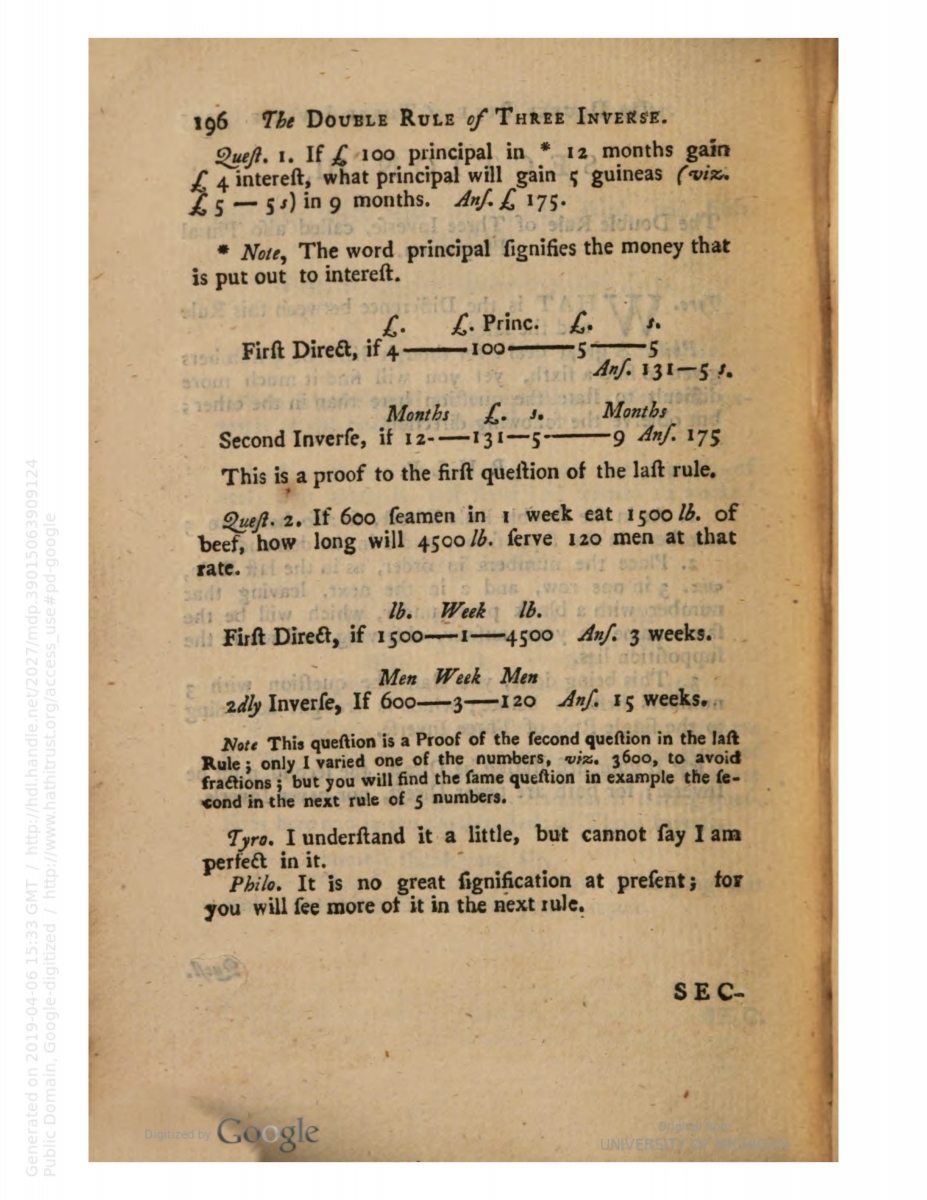 196 The DOUBLE RULE of THREE INVERSE.
Queſt. 1. If £ 100 principal in * 12 months gain
£ 4 intereſt, what principal will gain 5 guineas (viz.
£ 5 — 5 s) in 9 months. Anſ. £ 175.
* Note, The word principal ſignifies the money that
is put out to intereſt.
£. £. Princ. £. s.
Firſt Direct, if 4——100——5——5
Anſ. 131—5 s.
Months £. s. Months
Second Inverſe, if 12-—131—5-——9 Anſ. 175
This is a proof to the firſt queſtion of the laſt rule.
Queſt. 2. If 600 ſeamen in 1 week eat 1500 lb. of
beef, how long will 4500 lb. ſerve 120 men at that
rate.
lb. Week lb.
Firſt Direct, if 1500—1—4500 Anſ. 3 weeks.
Men Week Men
2dly Inverſe, If 600—3—120 Anſ. 15 weeks.
Note This queſtion is a Proof of the ſecond queſtion in the laſt
Rule ; only I varied one of the numbers, viz. 3600, to avoid
fractions ; but you will find the ſame queſtion in example the ſe-
cond in the next rule of 5 numbers.
Tyro. I underſtand it a little, but cannot ſay I am
perfect in it.
Philo. It is no great ſignification at preſent; for
you will ſee more of it in the next rule.
SEC-
Digitized by Google
Original from
UNIVERSITY OF MICHIGAN
Generated on 2019-04-06 15:33 GMT / http://hdl.handle.net/2027/mdp.39015063909124
Public Domain, Google-digitized / http://www.hathitrust.org/access_use#pd-google